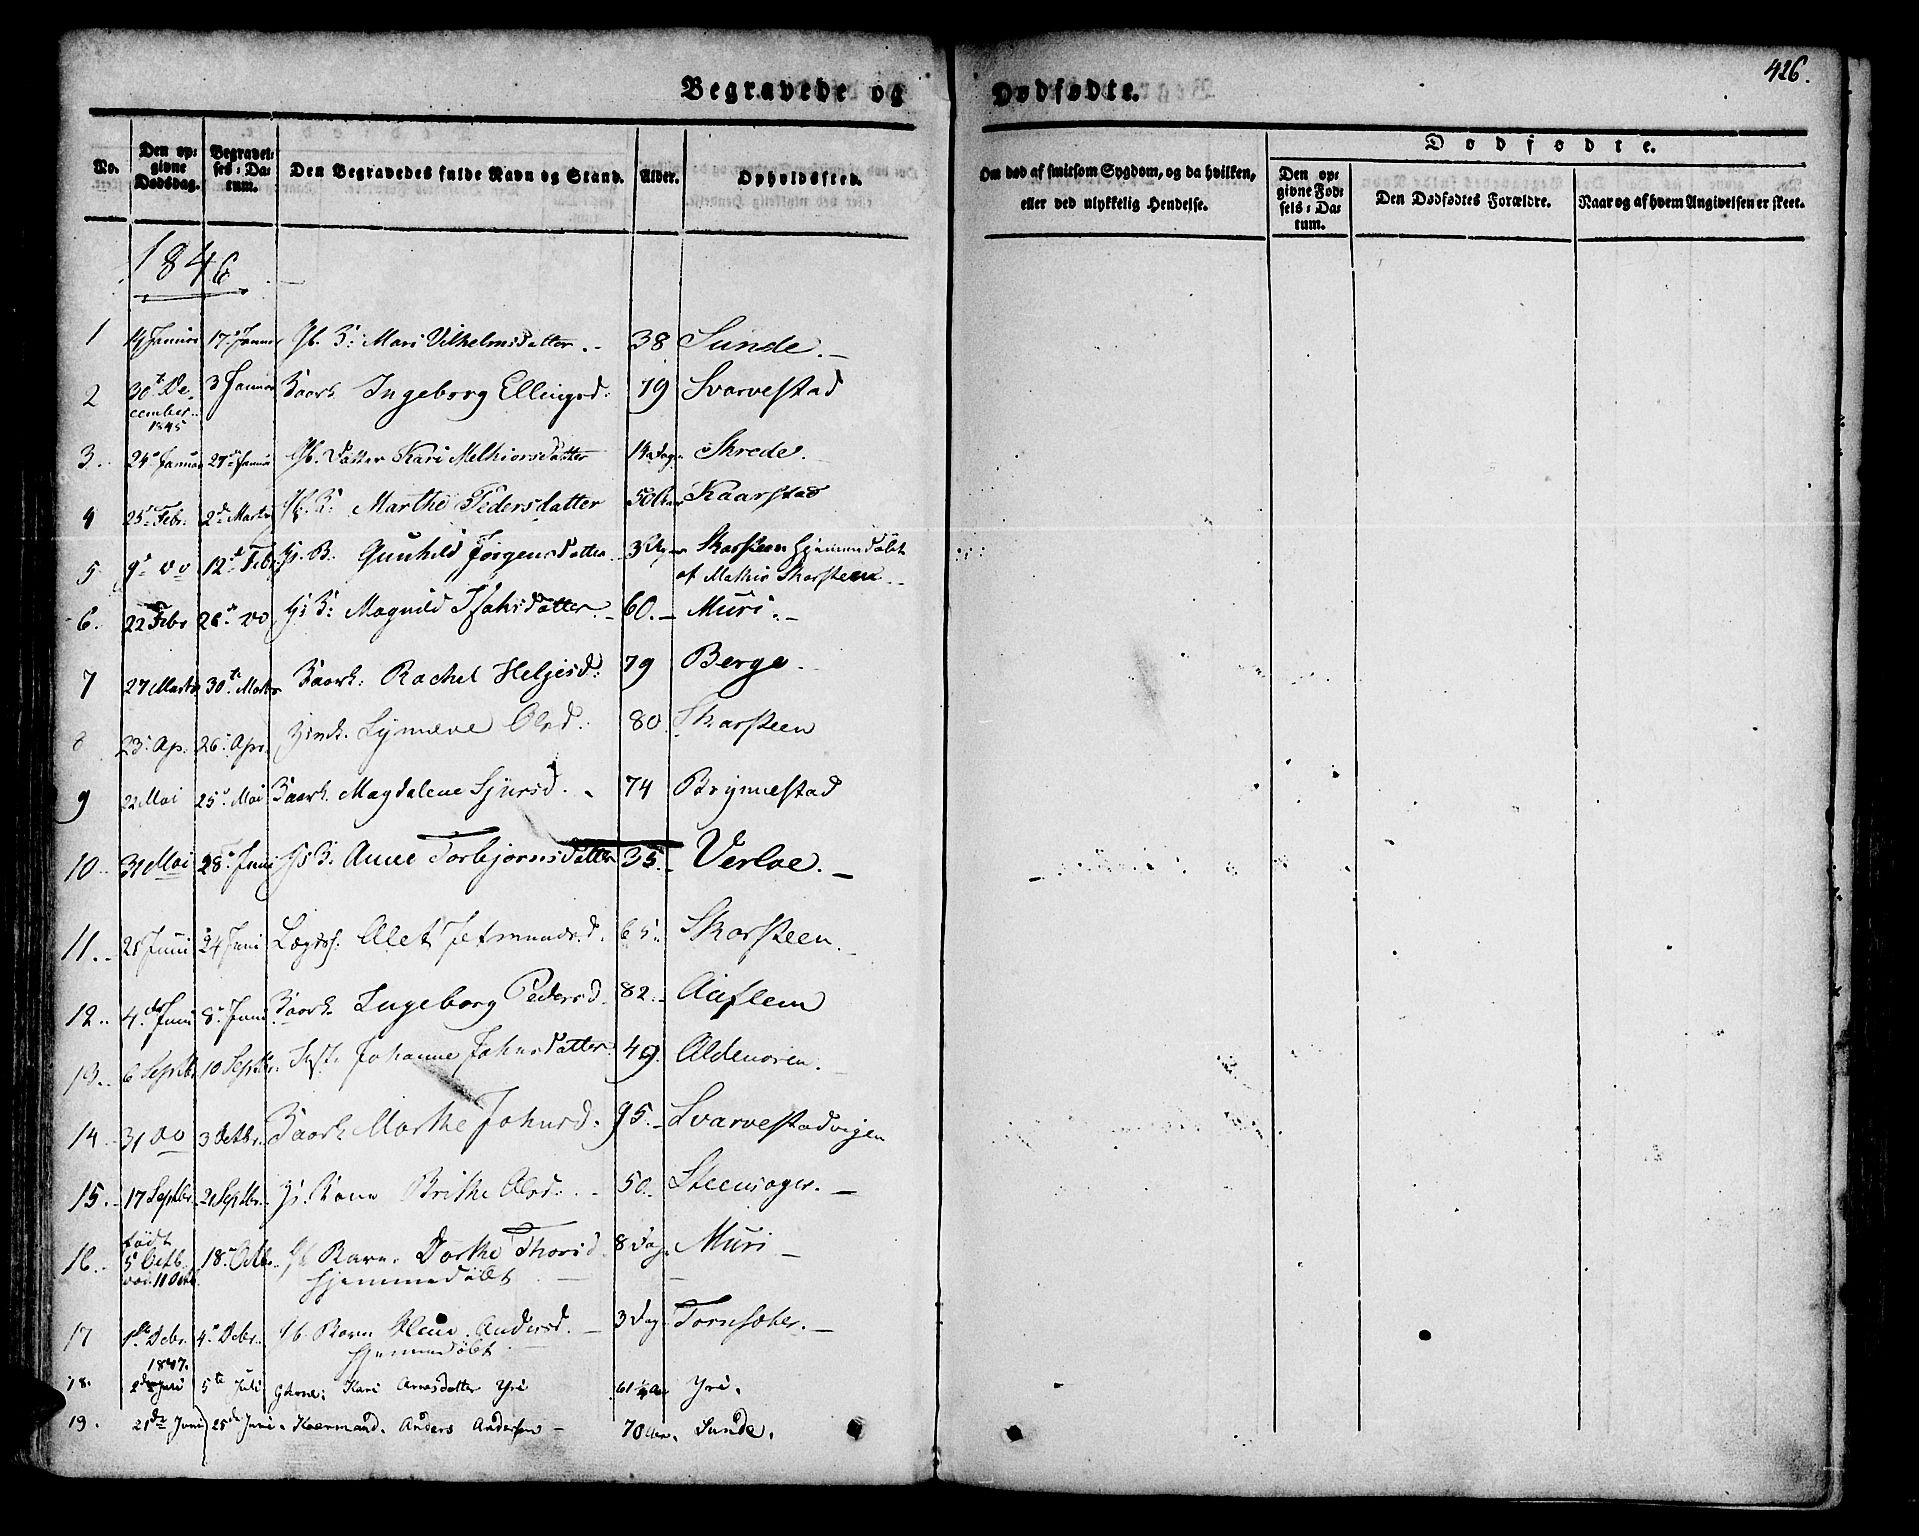 426.
Begravede og Dødfødte.
No.
Den op:givne Dødsdag.
Begravel:ses: Da:tum.
Den Begravedes fulde Navn og Stand.
Alder.
Opholdssted.
Om død af smitsom Sygdom, og da hvilken,
eller ved ulykkelig Hendelse.
Dødfødte.
Den op:givne Fød:sels: Da:tum.
Den Dødfødtes Forældre.
Naar og af hvem Angivelsen er skeet.
1846
1 14 Januar 17 Januar Mari Vilhelmsdatter. 38 Sunde.
2 30te De- 3 Januar Ingeborg Ellingsd: 79 Svarvestad
cember
1845
3. 24 Januar 27 Januar Datter Kari Melkiorsdatter 14 Dage Skrede.
4 25 Febr. 2d Marts Marthe Pedersdatter 50 Aar Kaarstad
5 9d do 12d Febr. Gunhild Jørgensdatter 3 Skarsteen Hjemmedøbt
af Mathis Skarsteen
6. 22 Febr 26d do Magnild Isaksdatter 60. Muri.
7 27 Marts 30te Marts Rachel Helgesd: 79 Berge.
8 23 Ap. 26 Apr. Synneve Olsd: 80 Skarsteen
9 22 Mai 25 Mai Magdalene Sjursd. 74 Brynnestad
10. 31 Mai 28 Juni Anne Torbjørnsdatter 35. Verloe.
11. 21 Juni 24 Juni Lægdsl: Alet Jetmundsd. 65. Skarsteen.
12. 4de Juni 8 Juni Ingeborg Pedersd. 82. Aaflem
13. 6 Septbr 10 Septbr. Johanne Johnsdatter. 49. Aldenoren.
14. 31 do 3 Octbr. Marthe Johnsd. 95. Svarvestadvigen
15. 17 Septbr. 21 Septbr. Kone Brithe Olsd. 50. Steensager.
født
16. 5 Octb. 18. Octbr. Barn. Dorthe Thorsd. 8 Dag. Muri
Hjemmedøbt
17 1ste Debr. 4 Debr. Barn Andersd. 3 Dag. Tornsæter.
Hjemmedøbt
1847.
18. 2den Juli 5te Juli Gkone: Kari Arnesdatter Yri 61 ½ Aar Yri.
19. 21de Juni 25de Juni Kaarmand. Anders Andersen 70 Aar. Sunde.